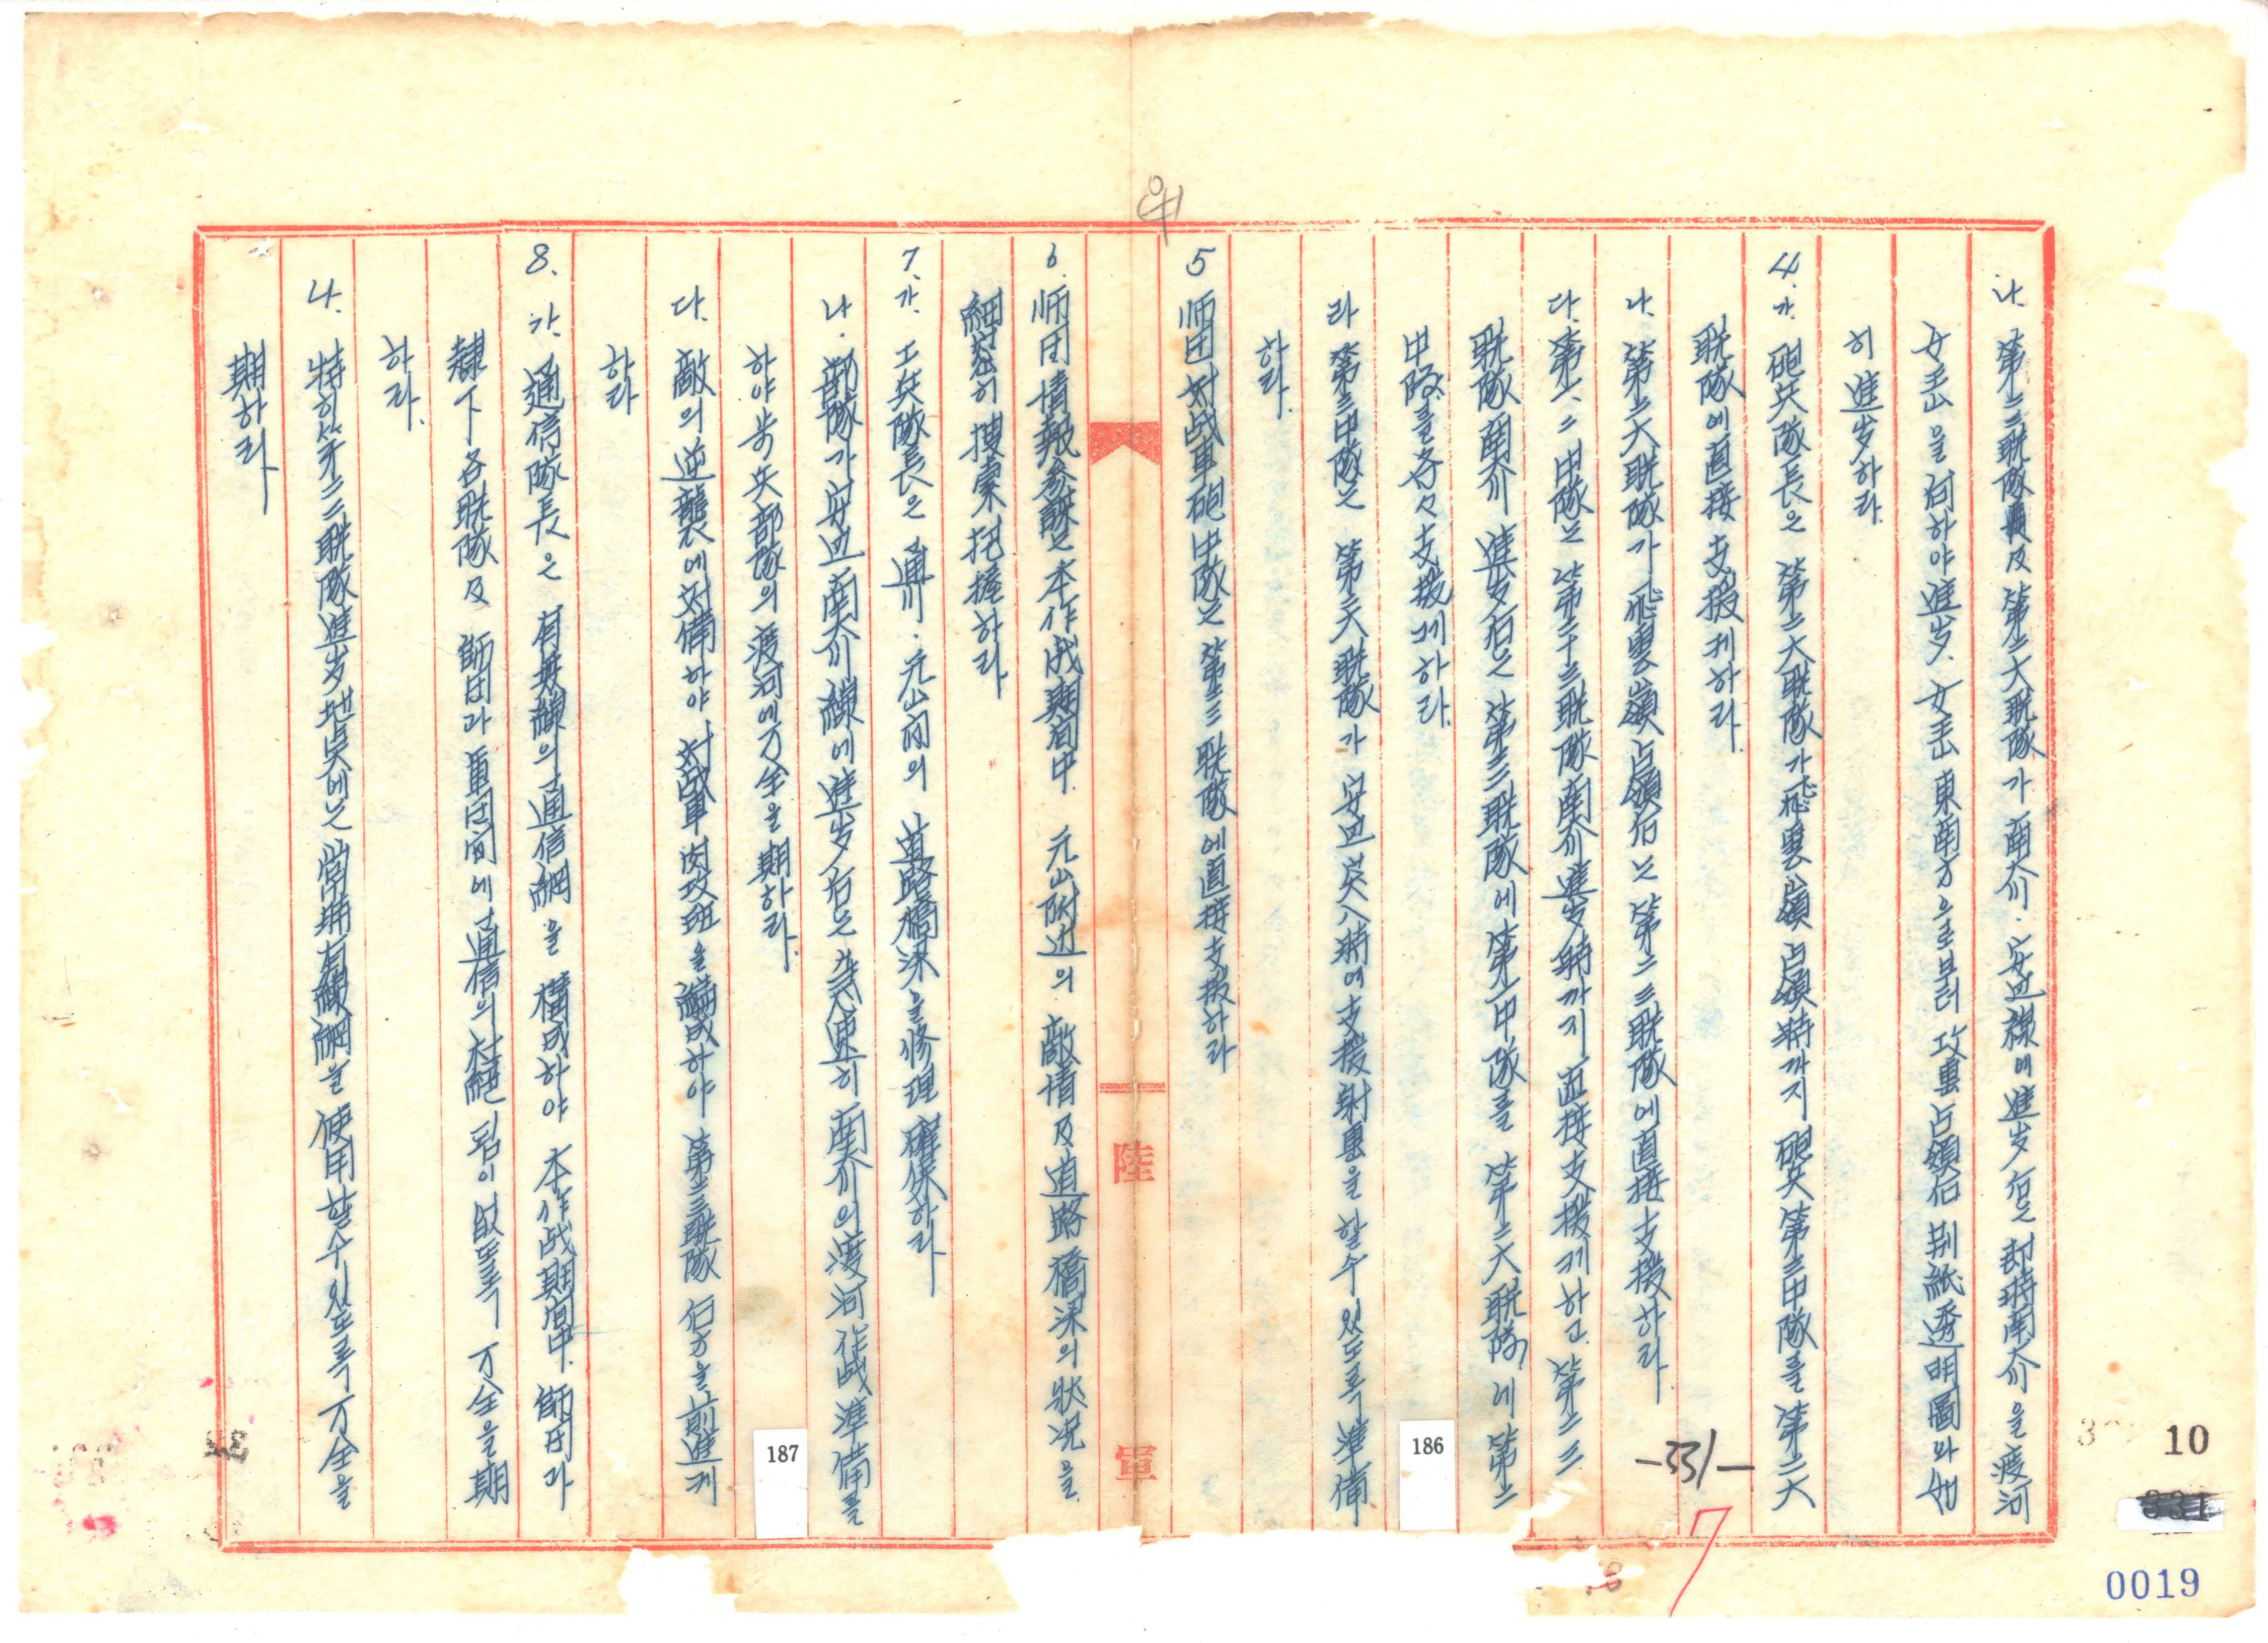 나. 第二三聯隊 及 第二大聯隊가 南大川·安辺線에 進出后는 即時南大川을 渡河
女王山을 向하야 進出、女王山 東南方으로부터 攻擊占領后 別紙透明圖와 如
히 進出하라.
4. 가. 砲兵隊長은 第二大聯隊가 飛雲嶺占領時까지 砲兵第三中隊를 第二大
聯隊에 直接支援케하라.
나. 第二大聯隊가 飛雲嶺占領后는 第二三聯隊에 直接支援하라.
다. 第一、二中隊는 第二十三聯隊南大川進出時까지 直接支援케하고. 第二三
聯隊南大川進出后는 第二三聯隊에 第一中隊를 第二大聯隊에 第二
中隊를 各々支援케하라.
라 第三中隊는 第二大聯隊가 安辺突入時에 支援射擊을 할수있도록 準備
하라.
5 师団対战車砲中隊는 第二三聯隊에 直接支援하라
6. 师団情報參謀는 本作战期间中. 元山附近의 敵情及道路橋梁의 狀况을
細密히 搜索把握하라.
7. 가. 工兵隊長은 通川·元山间의 道路橋梁을 修理確保하라.
나. 部隊가 安辺南大川線에 進出后는 急速히 南大川의 渡河作战準備를
하야 步兵部隊의 渡河에 万全을 期하라.
다. 敵의 逆襲에 対備하야 対战車肉攻班을 編成하야 第二三聯隊 后方을 前進케
하라
8. 가. 通信隊長은 有無線의 通信網을 構成하야 本作战期间中. 師団과
隸下各聯隊及 師団과 軍団间에 通信의 杜絕됨이 없도록 万全을 期
하라.
나. 特히 第二三聯隊進出地点에는 常時有線網을 使用할수있도록 万全을
期하라
陸 軍
186
187
-331-
7
10
331
0019